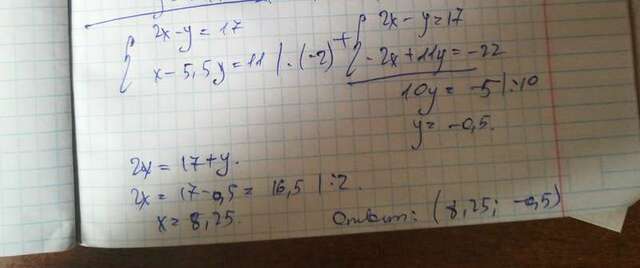 { 2x - y = 17
x - 5,5y = 11 | · (-2)
+ { 2x - y = 17
-2x + 11y = -22
10y = -5 | :10
y = -0,5.
2x = 17 + y.
2x = 17 - 0,5 = 16,5 | :2.
x = 8,25.
Ответ: (8,25; -0,5)